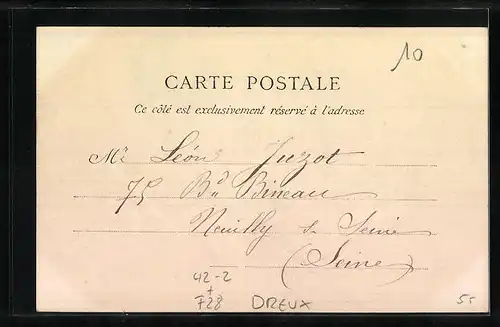 10
CARTE POSTALE
Ce côté est exclusivement réservé à l'adresse
Mr Léon Juzot
75 Bd Bineau
Neuilly s. Seine
(Seine)
42-2
+
F28 DREUX 5-